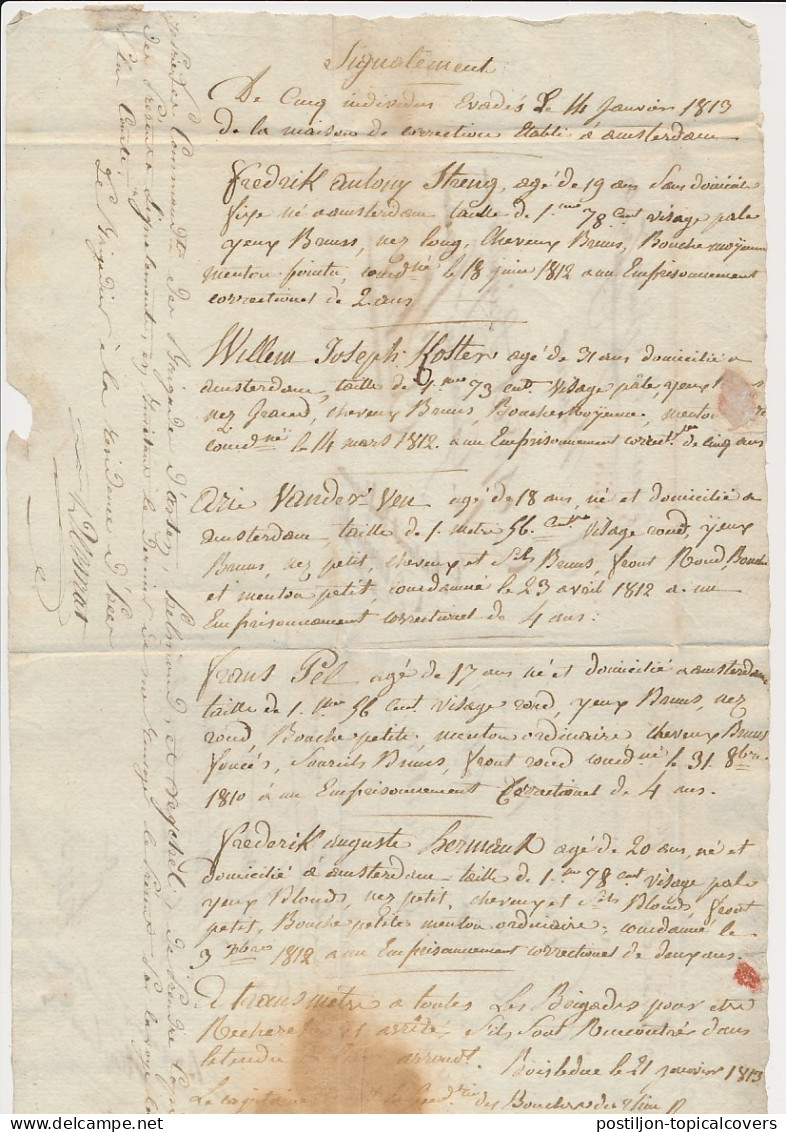 Signalement
De Cinq individus Evadés Le 14 Janvier 1813
de la maison de correction établi a amsterdam
fredrik antony Streng, agé de 19 ans Sans domicile
fixe né a amsterdam, taille de 1. me 78 Cent visage pale
yeux Bruns, nez long, Cheveux Bruns, Bouche moyenne
menton pointu, cond né le 18 juin 1812 a un Emprisonnement
correctionel de 2 ans
Willem Joseph Koster agé de 31 ans domicilié a
amsterdam, taille de 1. me 73 cent. visage pâle, yeux
nez Grand, cheveux Bruns, Bouche Moyenne, menton
cond né le 14 mars 1812. a un Emprisonnement correct. de cinq ans
arie Vander Ven agé de 18 ans, né et domicilié a
amsterdam taille de 1. metre 56 visage rond, yeux
Bruns, nez petit, cheveux et Bruns, front Rond, Bouche
et menton petit, condamné le 23 avril 1812 a un
Emprisonnement correctionel de 4 ans.
frans Pel agé de 17 ans né et domicilié a amsterdam
taille de 1. me 56 Cent visage rond, yeux Bruns, nez
rond, Bouche petite, menton ordinaire cheveux Bruns
foncés, Sourcils Bruns, front rond cond né le 31. 8bre
1810 à un Emprisonnement Correctionel de 4 ans.
frederik auguste hermank agé de 20 ans, né et
domicilié à amsterdam taille de 1. me 78 cent visage pale
yeux Blonds, nez petit, cheveux et Blonds, front
petit, Bouche petite menton ordinaire, condamné le
3 1812 a un Emprisonnement correctionel de deux ans.
A transmetre a toutes Les Brigades pour etre
Recherchés et arrêté Sils Sont Rencontrés dans
letendue arrondt. Boisleduc le 21 janvier 1813
Le capitaine des Bouches du Rhin
des Brigade d'asten, helmond, et veghel, de prendre
des Présent Signalement, et
Le Brigadier à la residence d'
postiljon-topicalcovers.com